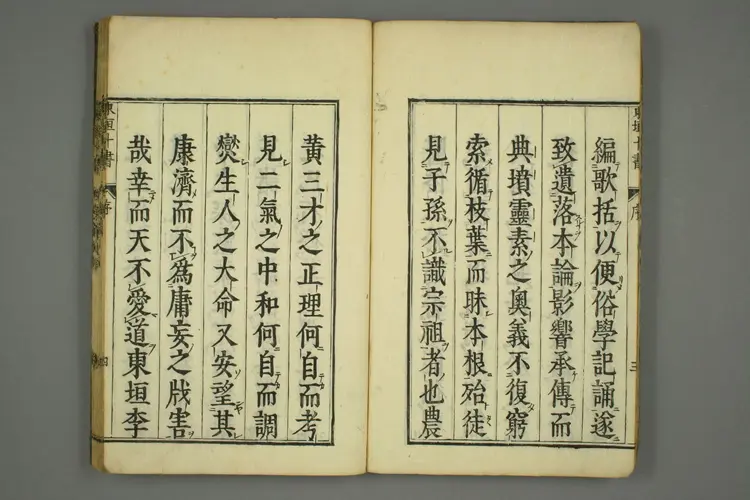 編歌括以便俗學記誦遂
致遺落本論影響承傳而
典墳靈素之奧義不復窮
索循枝葉而昧本根殆徒
見子孫不識宗祖者也農
黃三才之正理何自而考
見二氣之中和何自而調
爕生人之大命又安望其
康濟而不為庸妄之戕害
哉幸而天不愛道東垣李
東垣十書
序
三
東垣十書
序
四